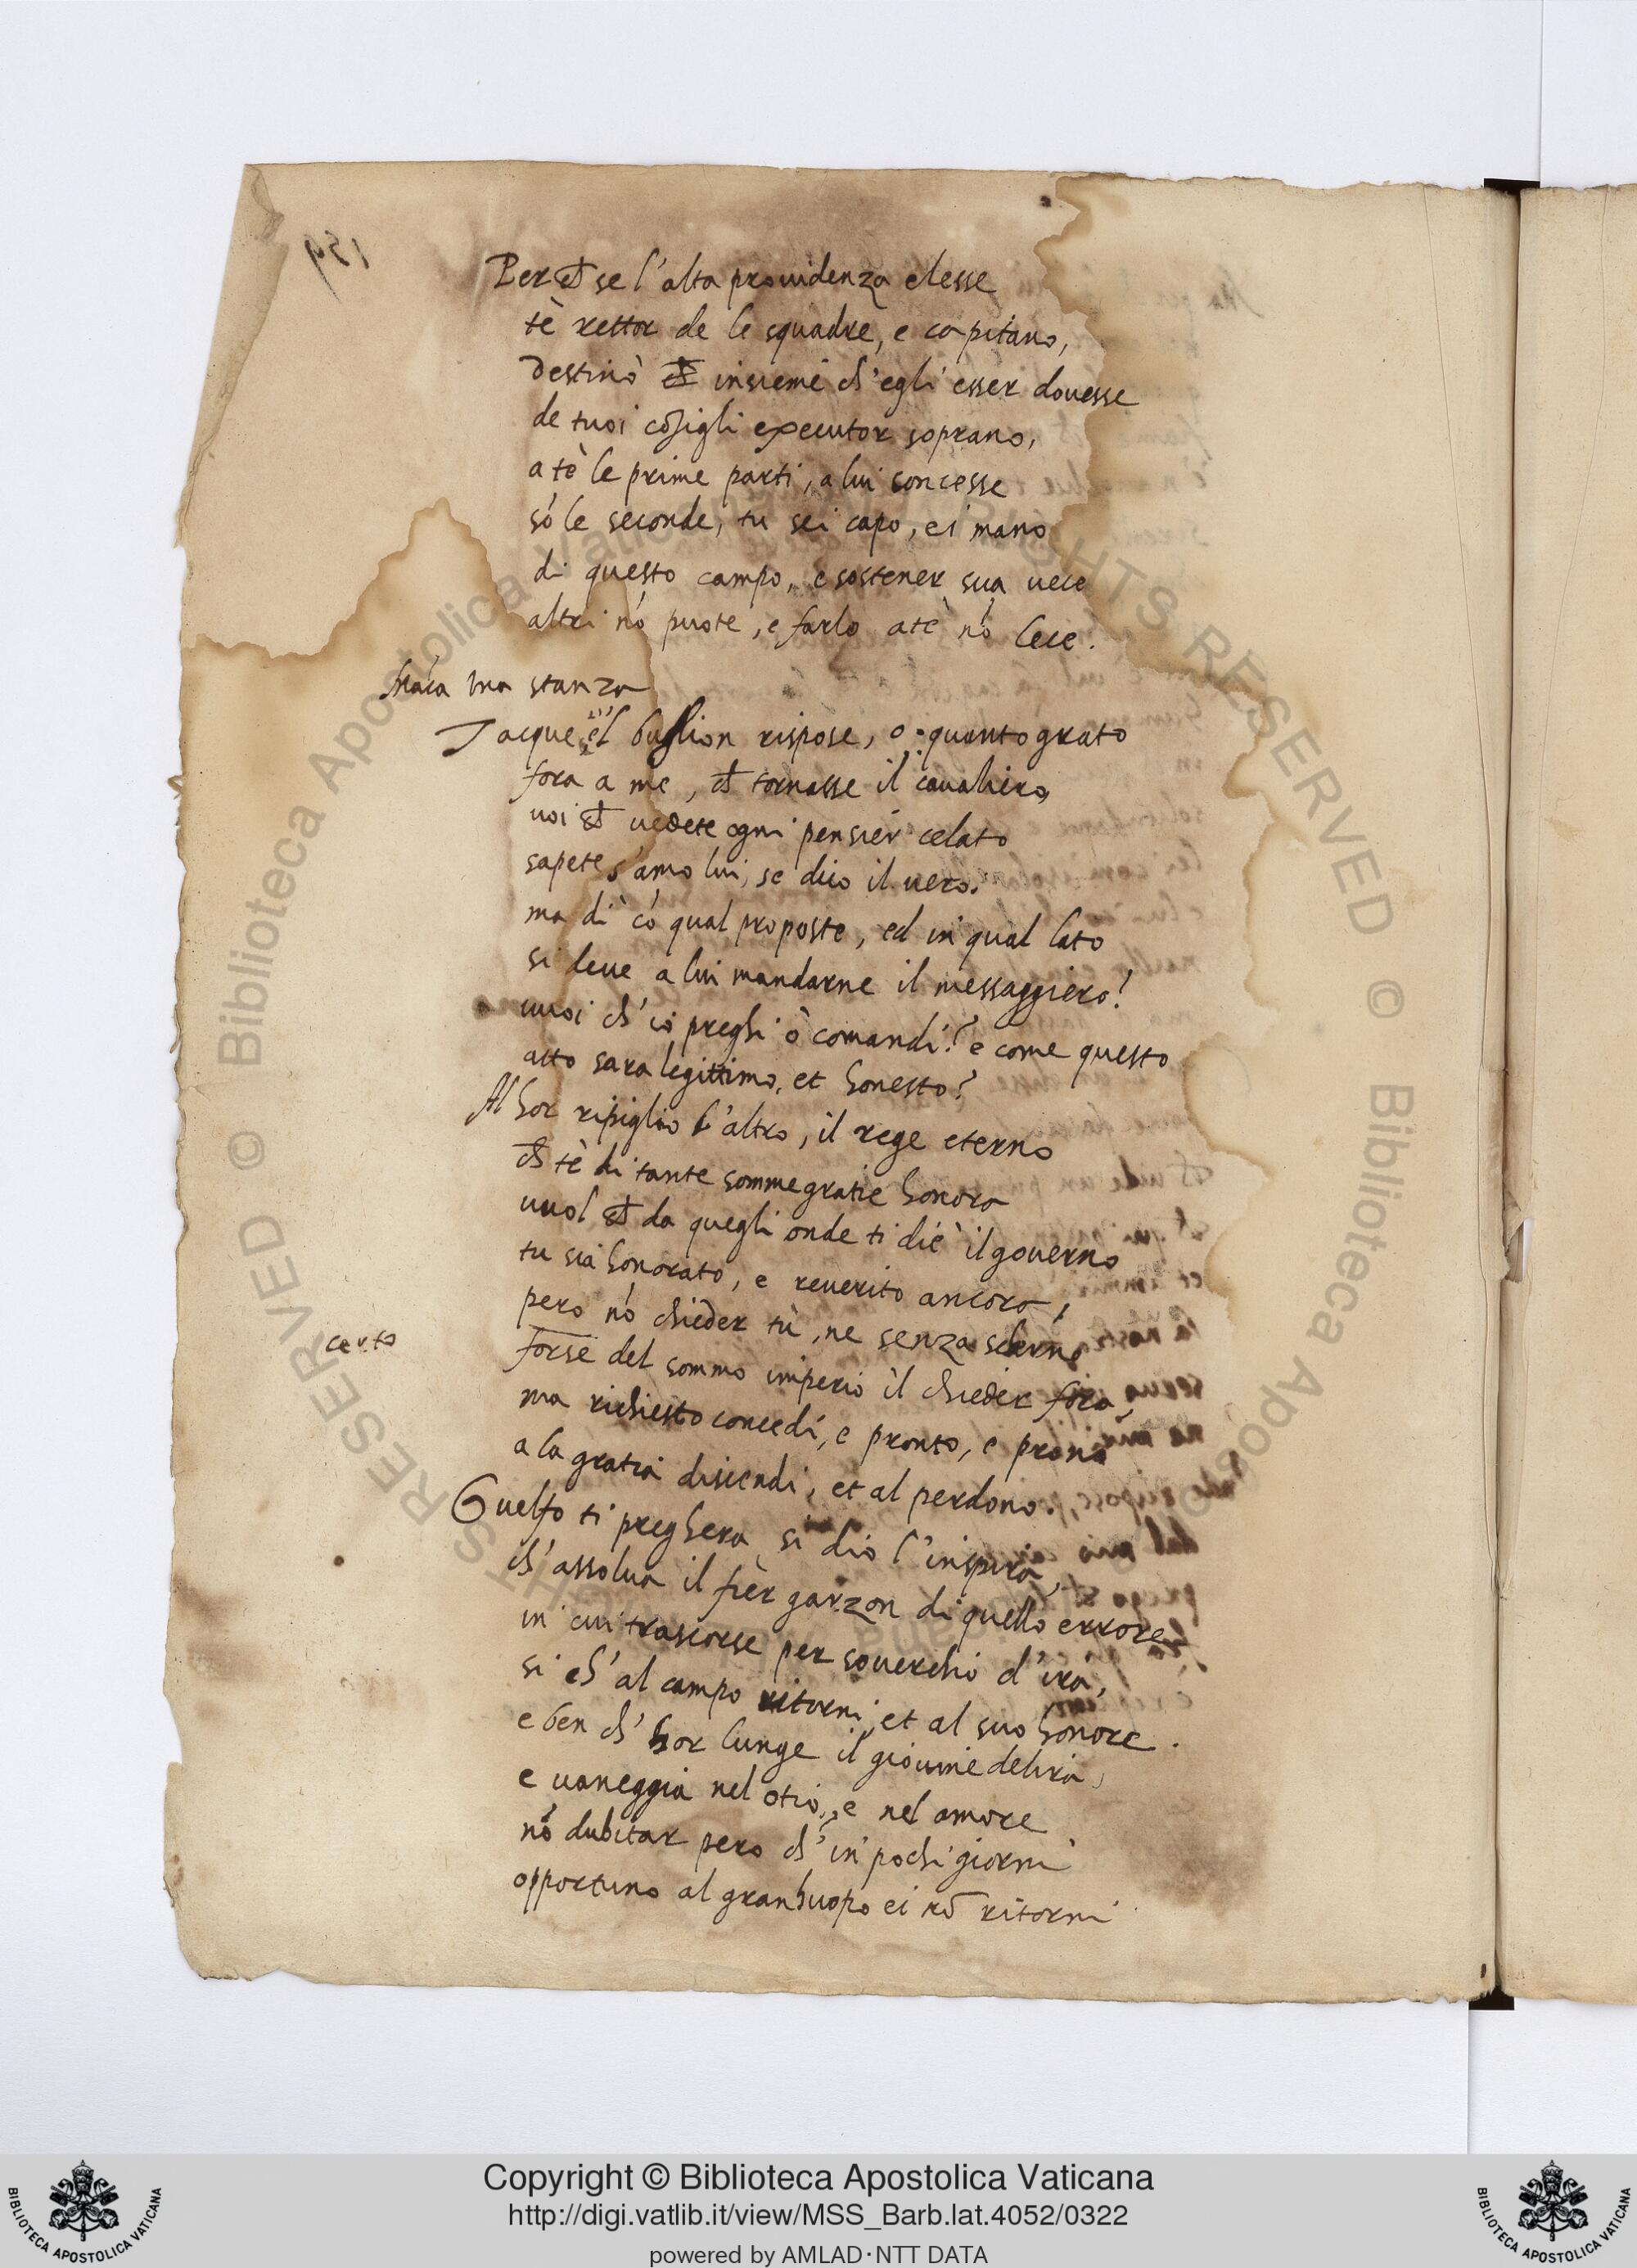 159
Per ch se l'alta prouidenza elesse
tè rettor de le squadre, e capitano,
destinò insieme ch'egli esser douesse
de tuoi cõsigli executor soprano,
a tè le prime parti, a lui concesse
só le seconde, tu sei capo, ei mano
di questo campo, e sostener sua uece
altri nó puote, e farlo a tè nó lece.
Máca vna stanza
Tacque, e'l buglion rispose, o quanto grato
fora a me, ch tornasse il caualiero,
uoi ch uedete ogni pensier celato
sapete s'amo lui, se dico il uero.
ma di có qual proposte, ed in qual lato
si deue a lui mandarne il messaggiero?
uuoi ch'io preghi ò comandi? e come questo
atto sara legittimo, et honesto?
Al hor ripiglio l'altro, il rege eterno
ch tè di tante somme gratie honora
uuol ch da quegli onde ti diè il gouerno
tu sia honorato, e reuerito ancora,
pero nó chieder tù, ne senza scherno
certo
forse del sommo imperio il chieder fora,
ma richiesto concedi, e pronto, e prono
a la gratia discendi, et al perdono.
Guelfo ti preghera, si dio l'inspira,
ch'assolua il fier garzon di quello errore
in cui trascorse per souerchio d'ira,
si ch'al campo ritorni, et al suo honore.
e ben ch'hor lunge il giouine delira,
e uaneggia nel otio, e nel amore
nó dubitar pero ch'in pochi giorni
opportuno al grand'huopo ei nõ ritorni
© Biblioteca Apostolica Vaticana ALL RIGHTS RESERVED
Copyright © Biblioteca Apostolica Vaticana
http://digi.vatlib.it/view/MSS_Barb.lat.4052/0322
powered by AMLAD·NTT DATA
BIBLIOTECA APOSTOLICA VATICANA
BIBLIOTECA APOSTOLICA VATICANA